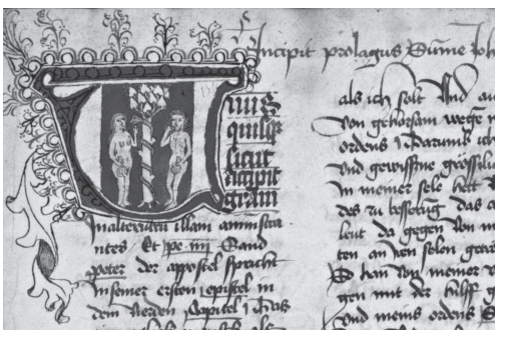 Incipit prologus Sume Joh
Unus
quisque
sicut
accipit
gram
Inalterutru illam amistra
ntes Et pe iiij Sand
peter der appostel spricht
In seiner ersten epistel in
dem vierden Capitel Das
als ich solt Vnd au
Von gehorsam wege
ordens Darumb ich
Vnd gewissne
In meiner sele hett
des zu besserug das
leut da gegen von
ten an iren selen
han von meiner
gen mit der hilff g
Vnd meins ordens